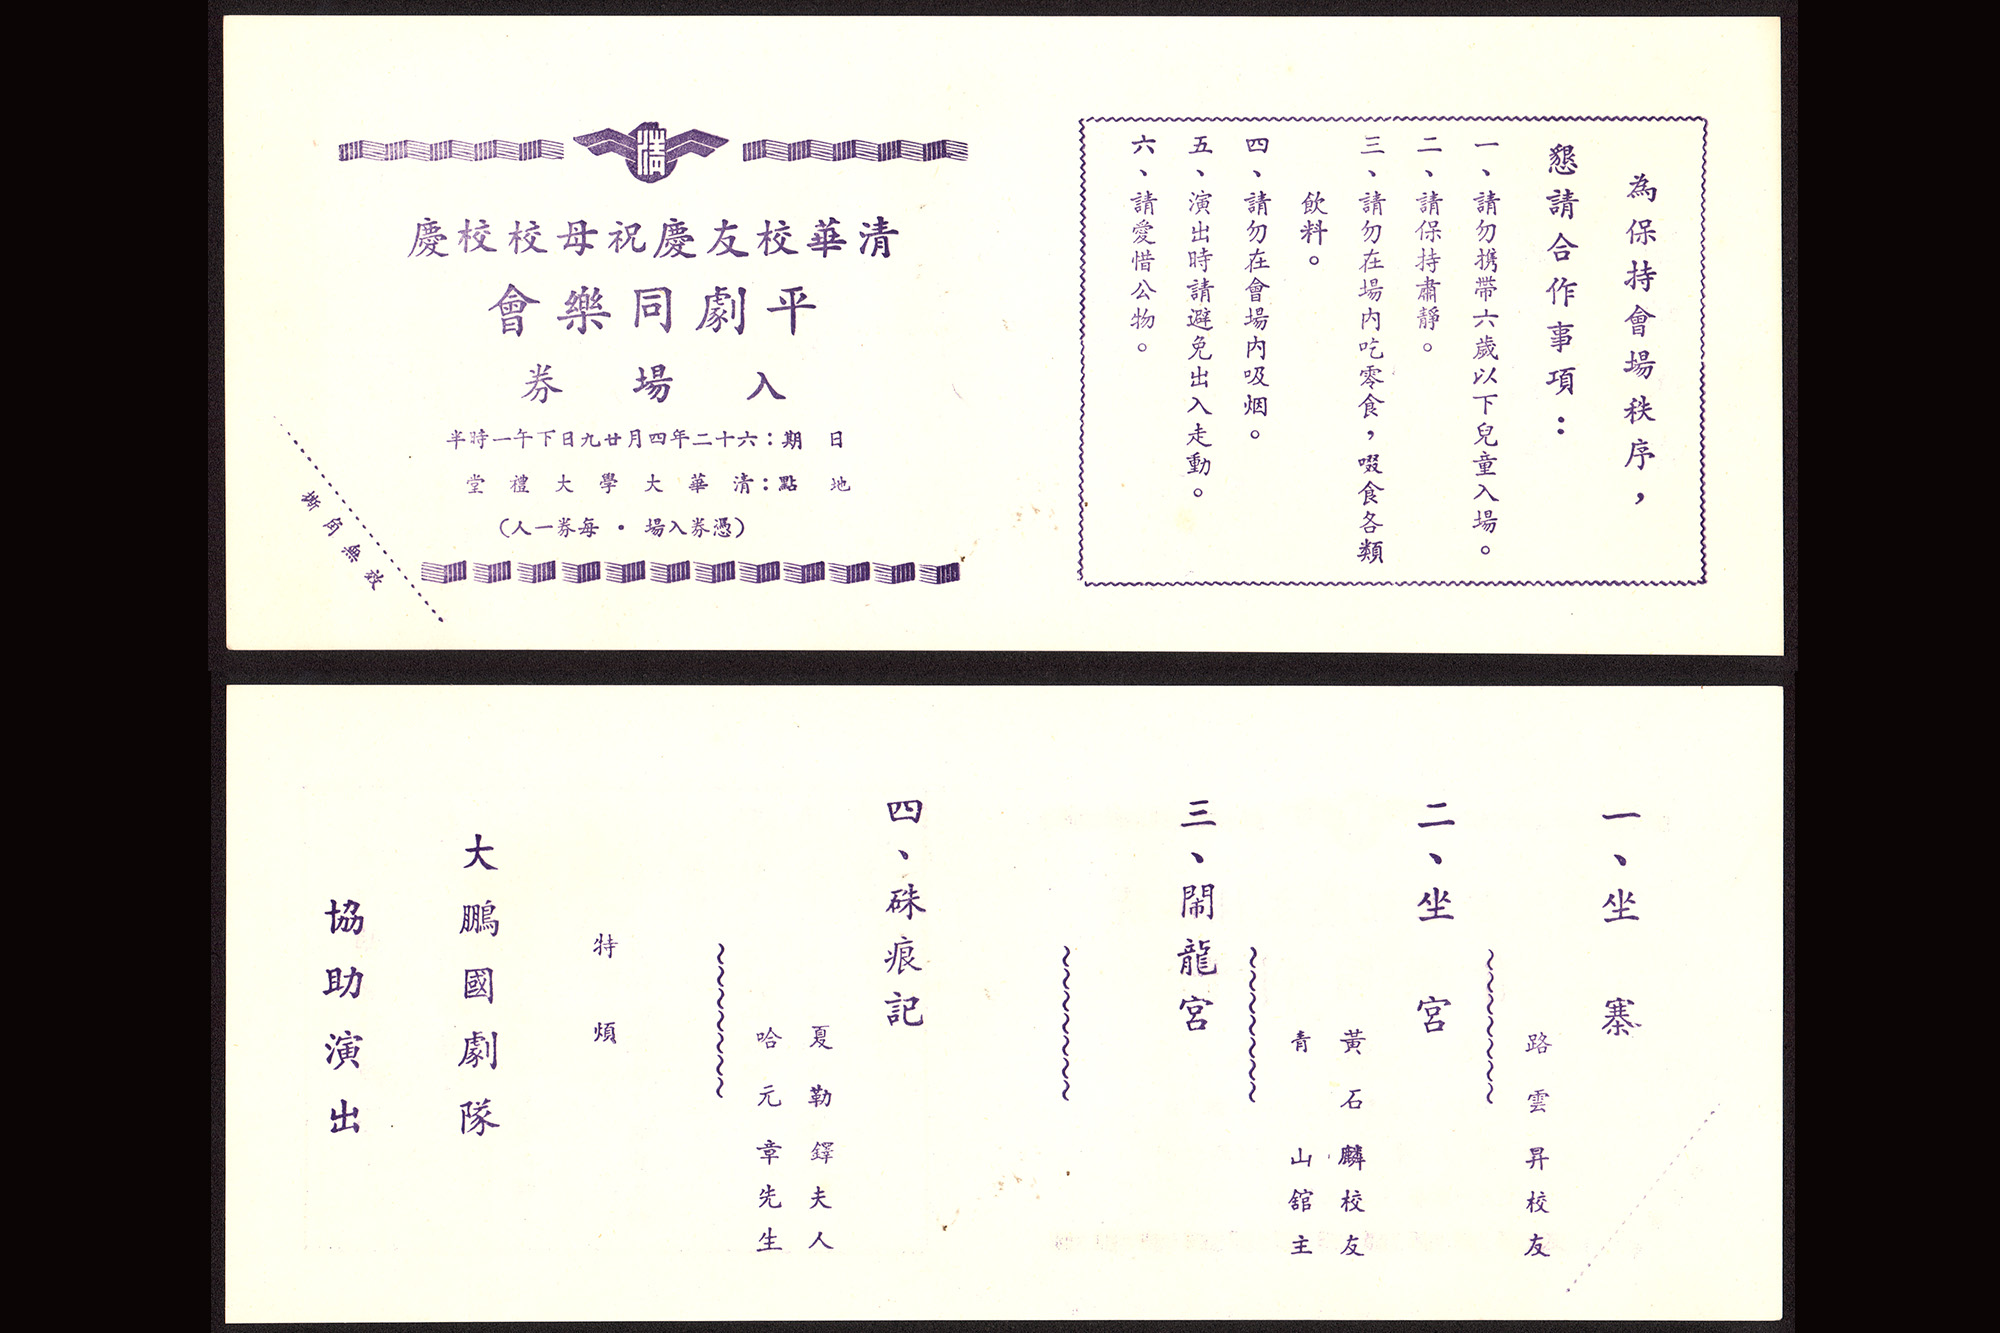 清
清華校友慶祝母校校慶
平劇同樂會
入場券
日期：六十二年四月廿九日下午一時半
地點：清華大學大禮堂
（憑券入場・每券一人）
撕角無效
為保持會場秩序，
懇請合作事項：
一、請勿攜帶六歲以下兒童入場。
二、請保持肅靜。
三、請勿在場內吃零食，啜食各類
飲料。
四、請勿在會場內吸烟。
五、演出時請避免出入走動。
六、請愛惜公物。
一、坐寨
路雲昇校友
二、坐宮
黃石麟校友
青山舘主
三、鬧龍宮
四、硃痕記
夏勒鐸夫人
哈元章先生
特煩
大鵬國劇隊
協助演出